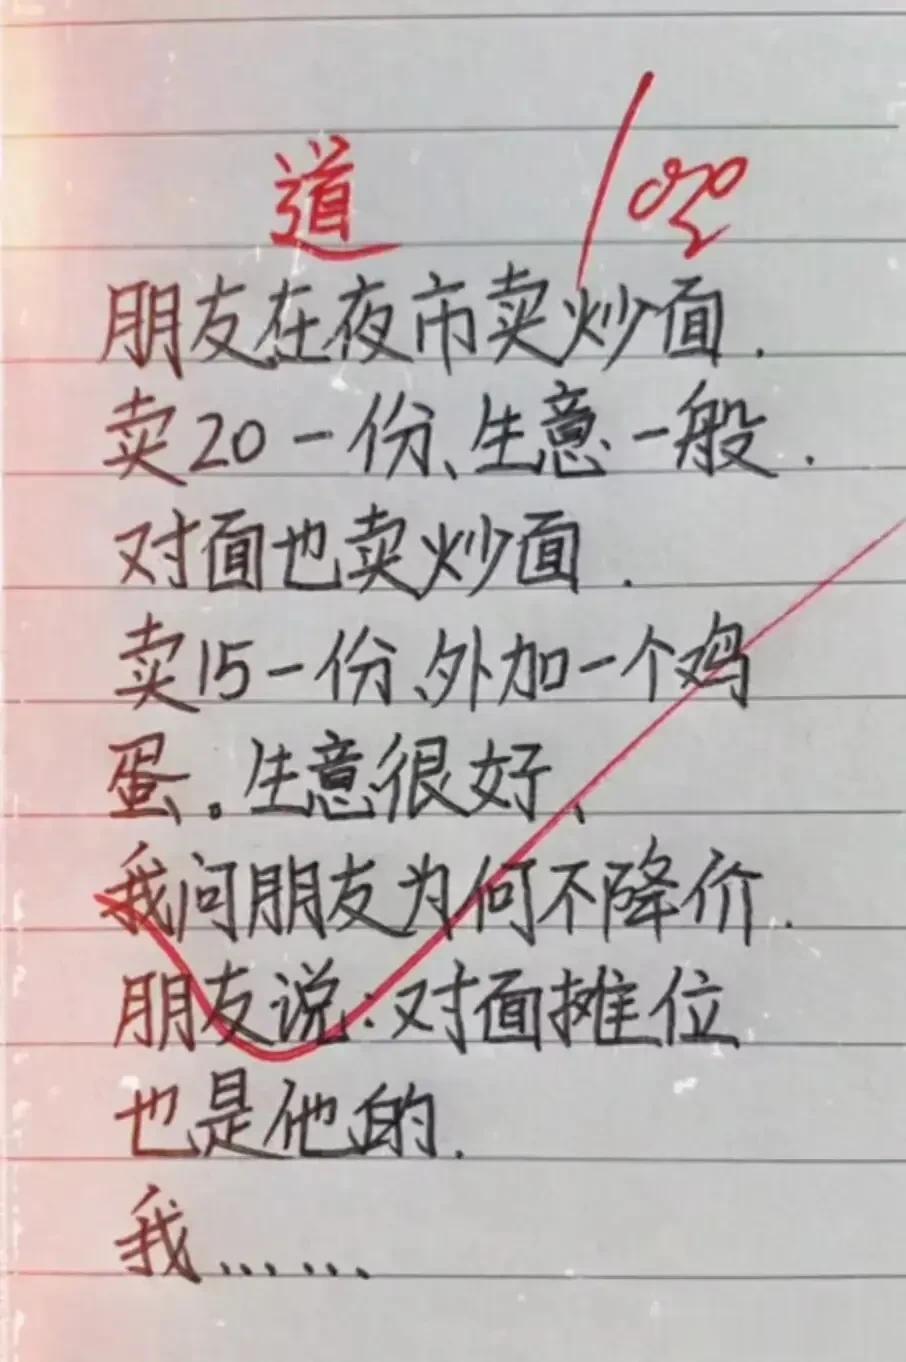 道
朋友在夜市卖炒面.
卖20一份、生意一般.
对面也卖炒面.
卖15一份、外加一个鸡
蛋。生意很好、
我问朋友为何不降价.
朋友说:对面摊位
也是他的.
我……